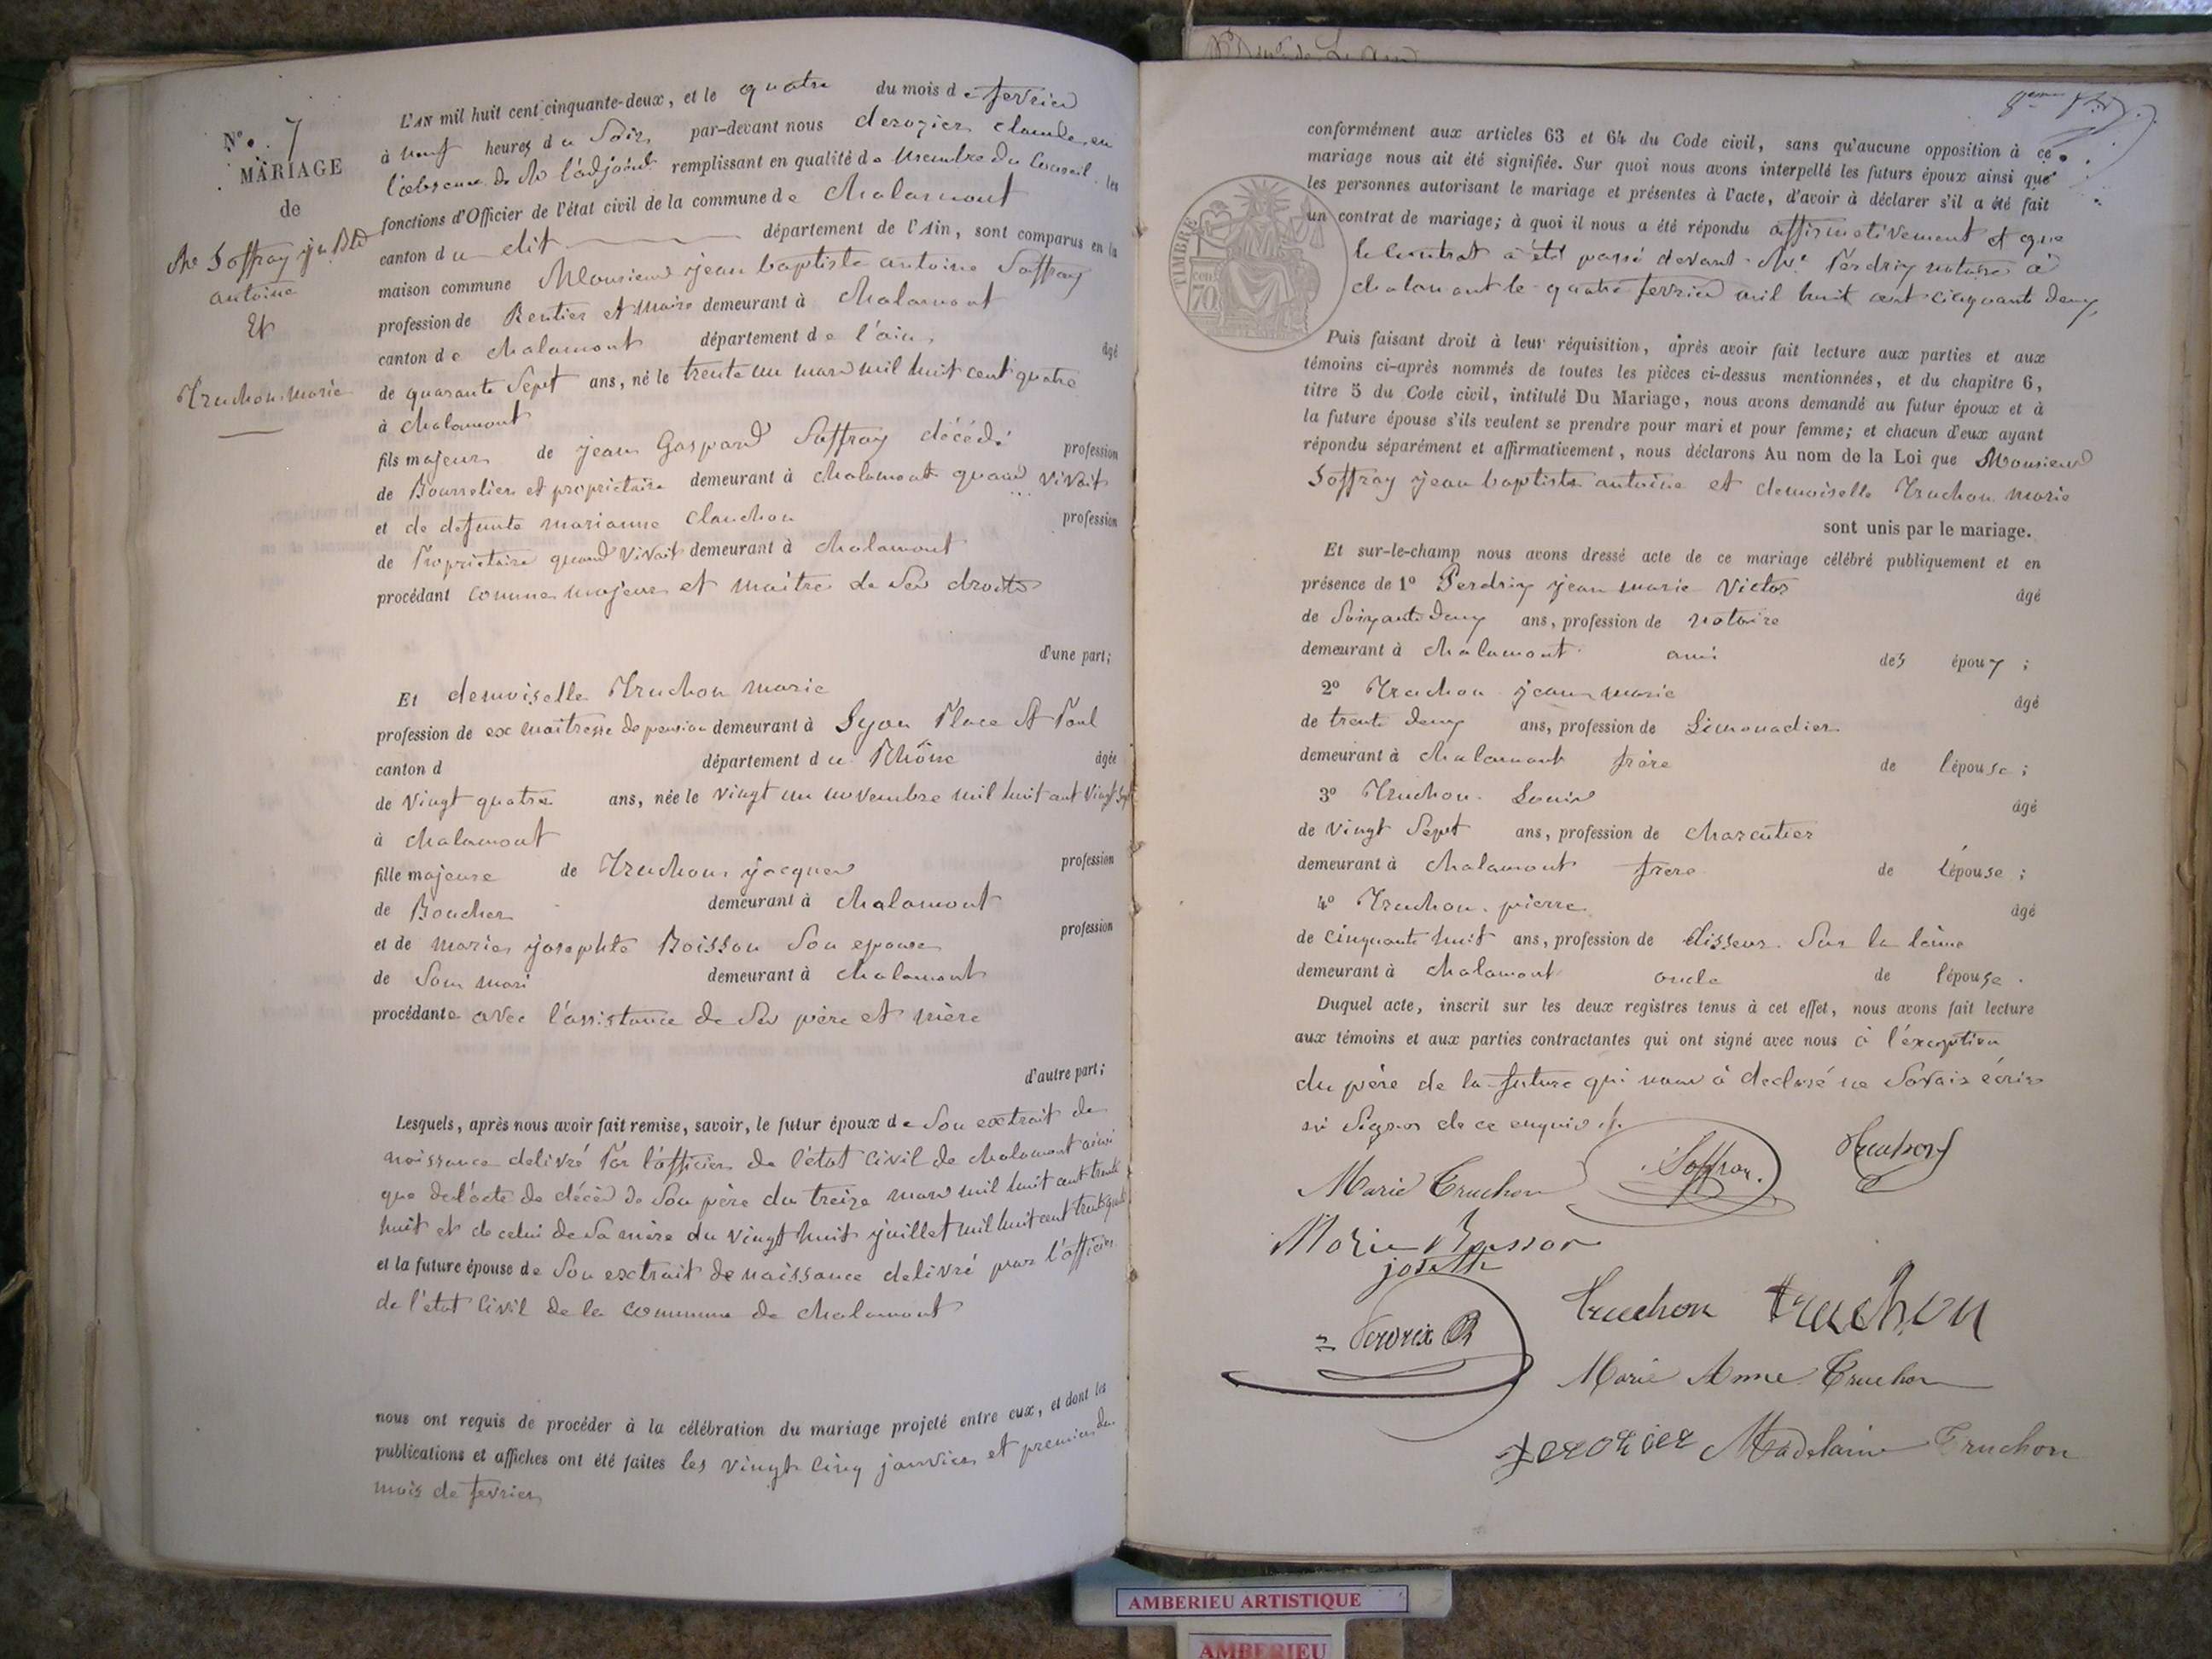 N°. 7
MARIAGE
de
Mr Soffray jn Bte
antoine
Et
Truchon marie
L'AN mil huit cent cinquante-deux, et le quatre du mois de fevrier
à neuf heures du Soir par-devant nous derogier claude en
l'absence de Mr l'adjoint remplissant en qualité de membre du Conseil les
fonctions d'Officier de l'état civil de la commune de chalamont
canton du dit département de l'Ain, sont comparus en la
maison commune Monsieur jean baptiste antoine Soffray
profession de Rentier et Maire demeurant à chalamont
canton de chalamont département de l'ain, âgé
de quarante Sept ans, né le trente un mars mil huit cent quatre
à chalamont
fils majeur de jean Gaspard Soffray décédé profession
de Bourrelier et propriétaire demeurant à chalamont quand vivait
et de defunte marianne clauchon profession
de Propriétaire quand vivait demeurant à chalamont
procédant comme majeur et maitre de Ses droits
d'une part;
Et demoiselle Truchon marie
profession de ex maitresse de pension demeurant à Lyon Place St Paul
canton d département du Rhône âgée
de vingt quatre ans, née le vingt un novembre mil huit cent vingt Sept
à chalamont
fille majeure de Truchon jacques profession
de Boucher demeurant à chalamont
et de marie josephte Boisson Son epouse profession
de Son mari demeurant à chalamont
procédante avec l'assistance de Ses père et mère
d'autre part;
Lesquels, après nous avoir fait remise, savoir, le futur époux de Son extrait de
naissance delivré Par l'officier de l'état civil de chalamont ainsi
que de l'acte de décès de Son père du treize mars mil huit cent trente
huit et de celui de Sa mère du vingt huit juillet mil huit cent trente quatre
et la future épouse de Son extrait de naissance delivré par l'officier
de l'état Civil de la commune de chalamont
nous ont requis de procéder à la célébration du mariage projeté entre eux, et dont les
publications et affiches ont été faites les vingt cinq janvier et premier du
mois de fevrier
conformément aux articles 63 et 64 du Code civil, sans qu'aucune opposition à ce
mariage nous ait été signifiée. Sur quoi nous avons interpellé les futurs époux ainsi que
les personnes autorisant le mariage et présentes à l'acte, d'avoir à déclarer s'il a été fait
un contrat de mariage; à quoi il nous a été répondu affirmativement et que
le contrat a été passé devant Me Perdrix notaire à
chalamont le quatre fevrier mil huit cent cinquante deux,
TIMBRE
70
Puis faisant droit à leur réquisition, après avoir fait lecture aux parties et aux
témoins ci-après nommés de toutes les pièces ci-dessus mentionnées, et du chapitre 6,
titre 5 du Code civil, intitulé Du Mariage, nous avons demandé au futur époux et à
la future épouse s'ils veulent se prendre pour mari et pour femme; et chacun d'eux ayant
répondu séparément et affirmativement, nous déclarons Au nom de la Loi que Monsieur
Soffray jean baptiste antoine et demoiselle Truchon marie
sont unis par le mariage.
Et sur-le-champ nous avons dressé acte de ce mariage célébré publiquement et en
présence de 1° Perdrix jean marie Victor âgé
de Soixante deux ans, profession de notaire
demeurant à chalamont ami des époux ;
2° Truchon jean marie âgé
de trente deux ans, profession de Limonadier
demeurant à chalamont frère de lépouse ;
3° Truchon Louis âgé
de vingt Sept ans, profession de charcutier
demeurant à chalamont frère de lépouse ;
4° Truchon pierre âgé
de cinquante huit ans, profession de
demeurant à chalamont oncle de lépouse .
Duquel acte, inscrit sur les deux registres tenus à cet effet, nous avons fait lecture
aux témoins et aux parties contractantes qui ont signé avec nous à l'exception
du père de la future qui nous à declaré ne Savoir écrire
ni Signer de ce enquis
Marie Truchon Soffray Truchon
Marie Boisson
josephte
Perdrix Truchon truchon
Marie Anne Truchon
derogier Madelaine Truchon
AMBERIEU ARTISTIQUE
AMBERIEU